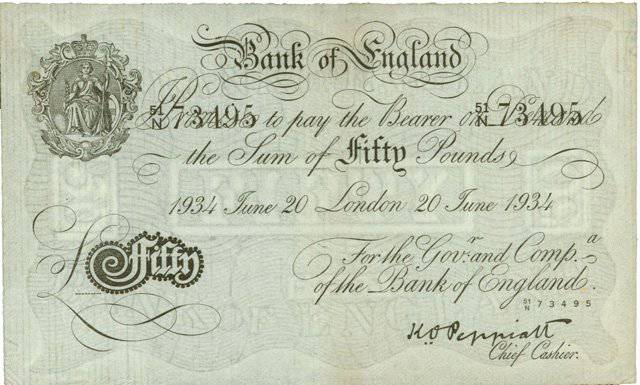 Bank of England
I Promise to pay the Bearer on Demand
51/N 73495 51/N 73495
the Sum of Fifty Pounds
1934 June 20 London 20 June 1934
£ Fifty
For the Gov.r and Comp.a
of the Bank of England.
51/N 73495
K.O. Peppiatt
Chief Cashier.